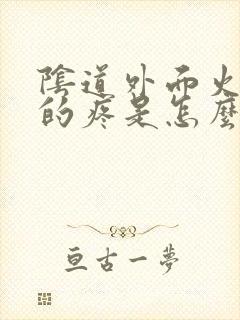 陰道外面火
的疼是怎麼
亘古一夢